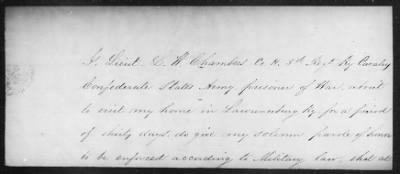 I, Lieut D. W. Chambers Co H. 5th Regt Ky Cavalry
Confederate States Army prisoner of War, about
to visit my home in Lawrenceburg Ky. for a period
of thirty days, do give my solemn parole of honor
to be enforced according to Military law, that at